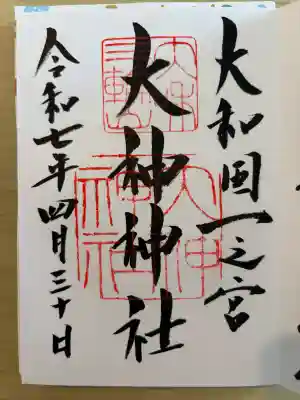 大和国一之宮
大神神社
令和七年四月三十日